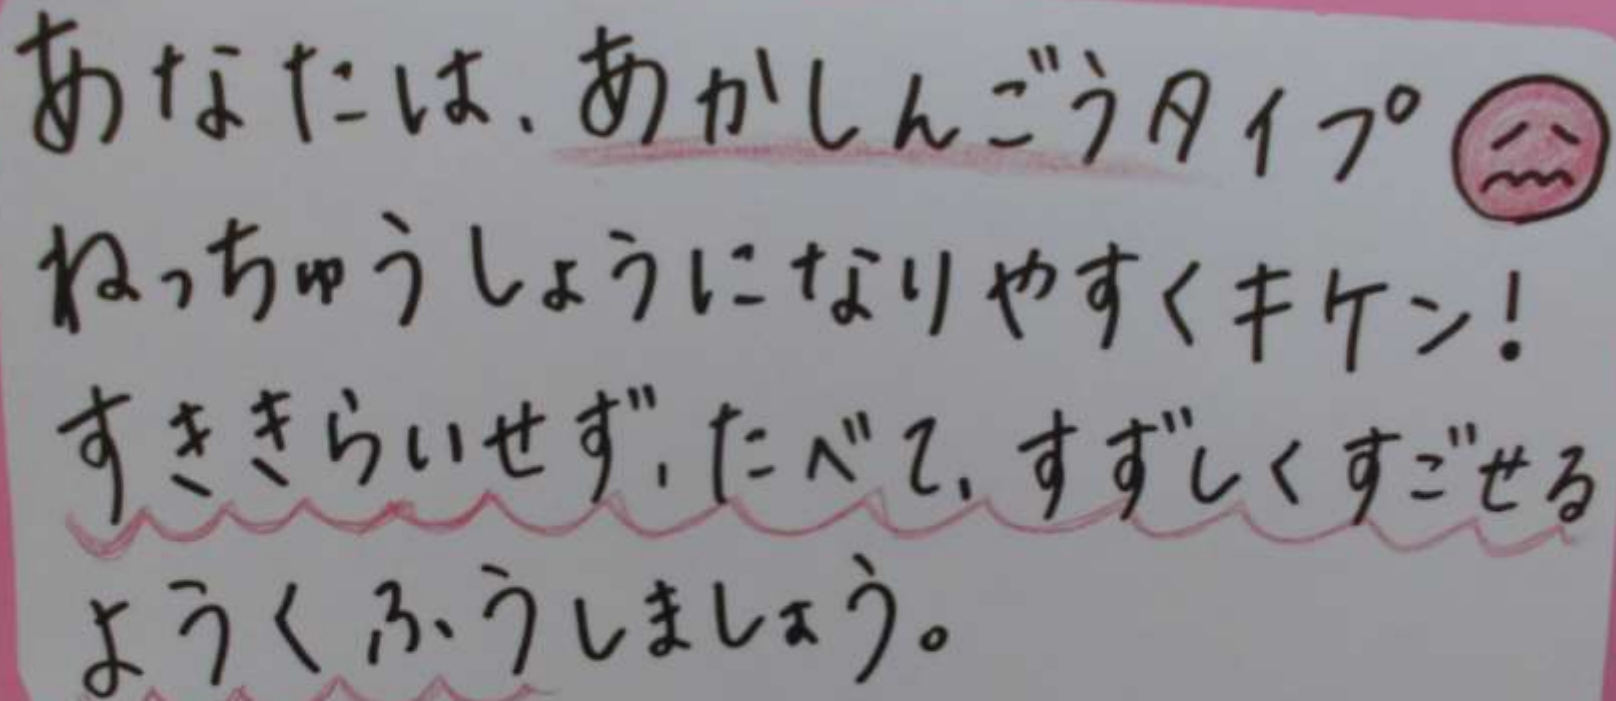 あなたは、あかしんごうタイプ
ねっちゅうしょうになりやすくキケン!
すききらいせず、たべて、すずしくすごせる
ようくふうしましょう。